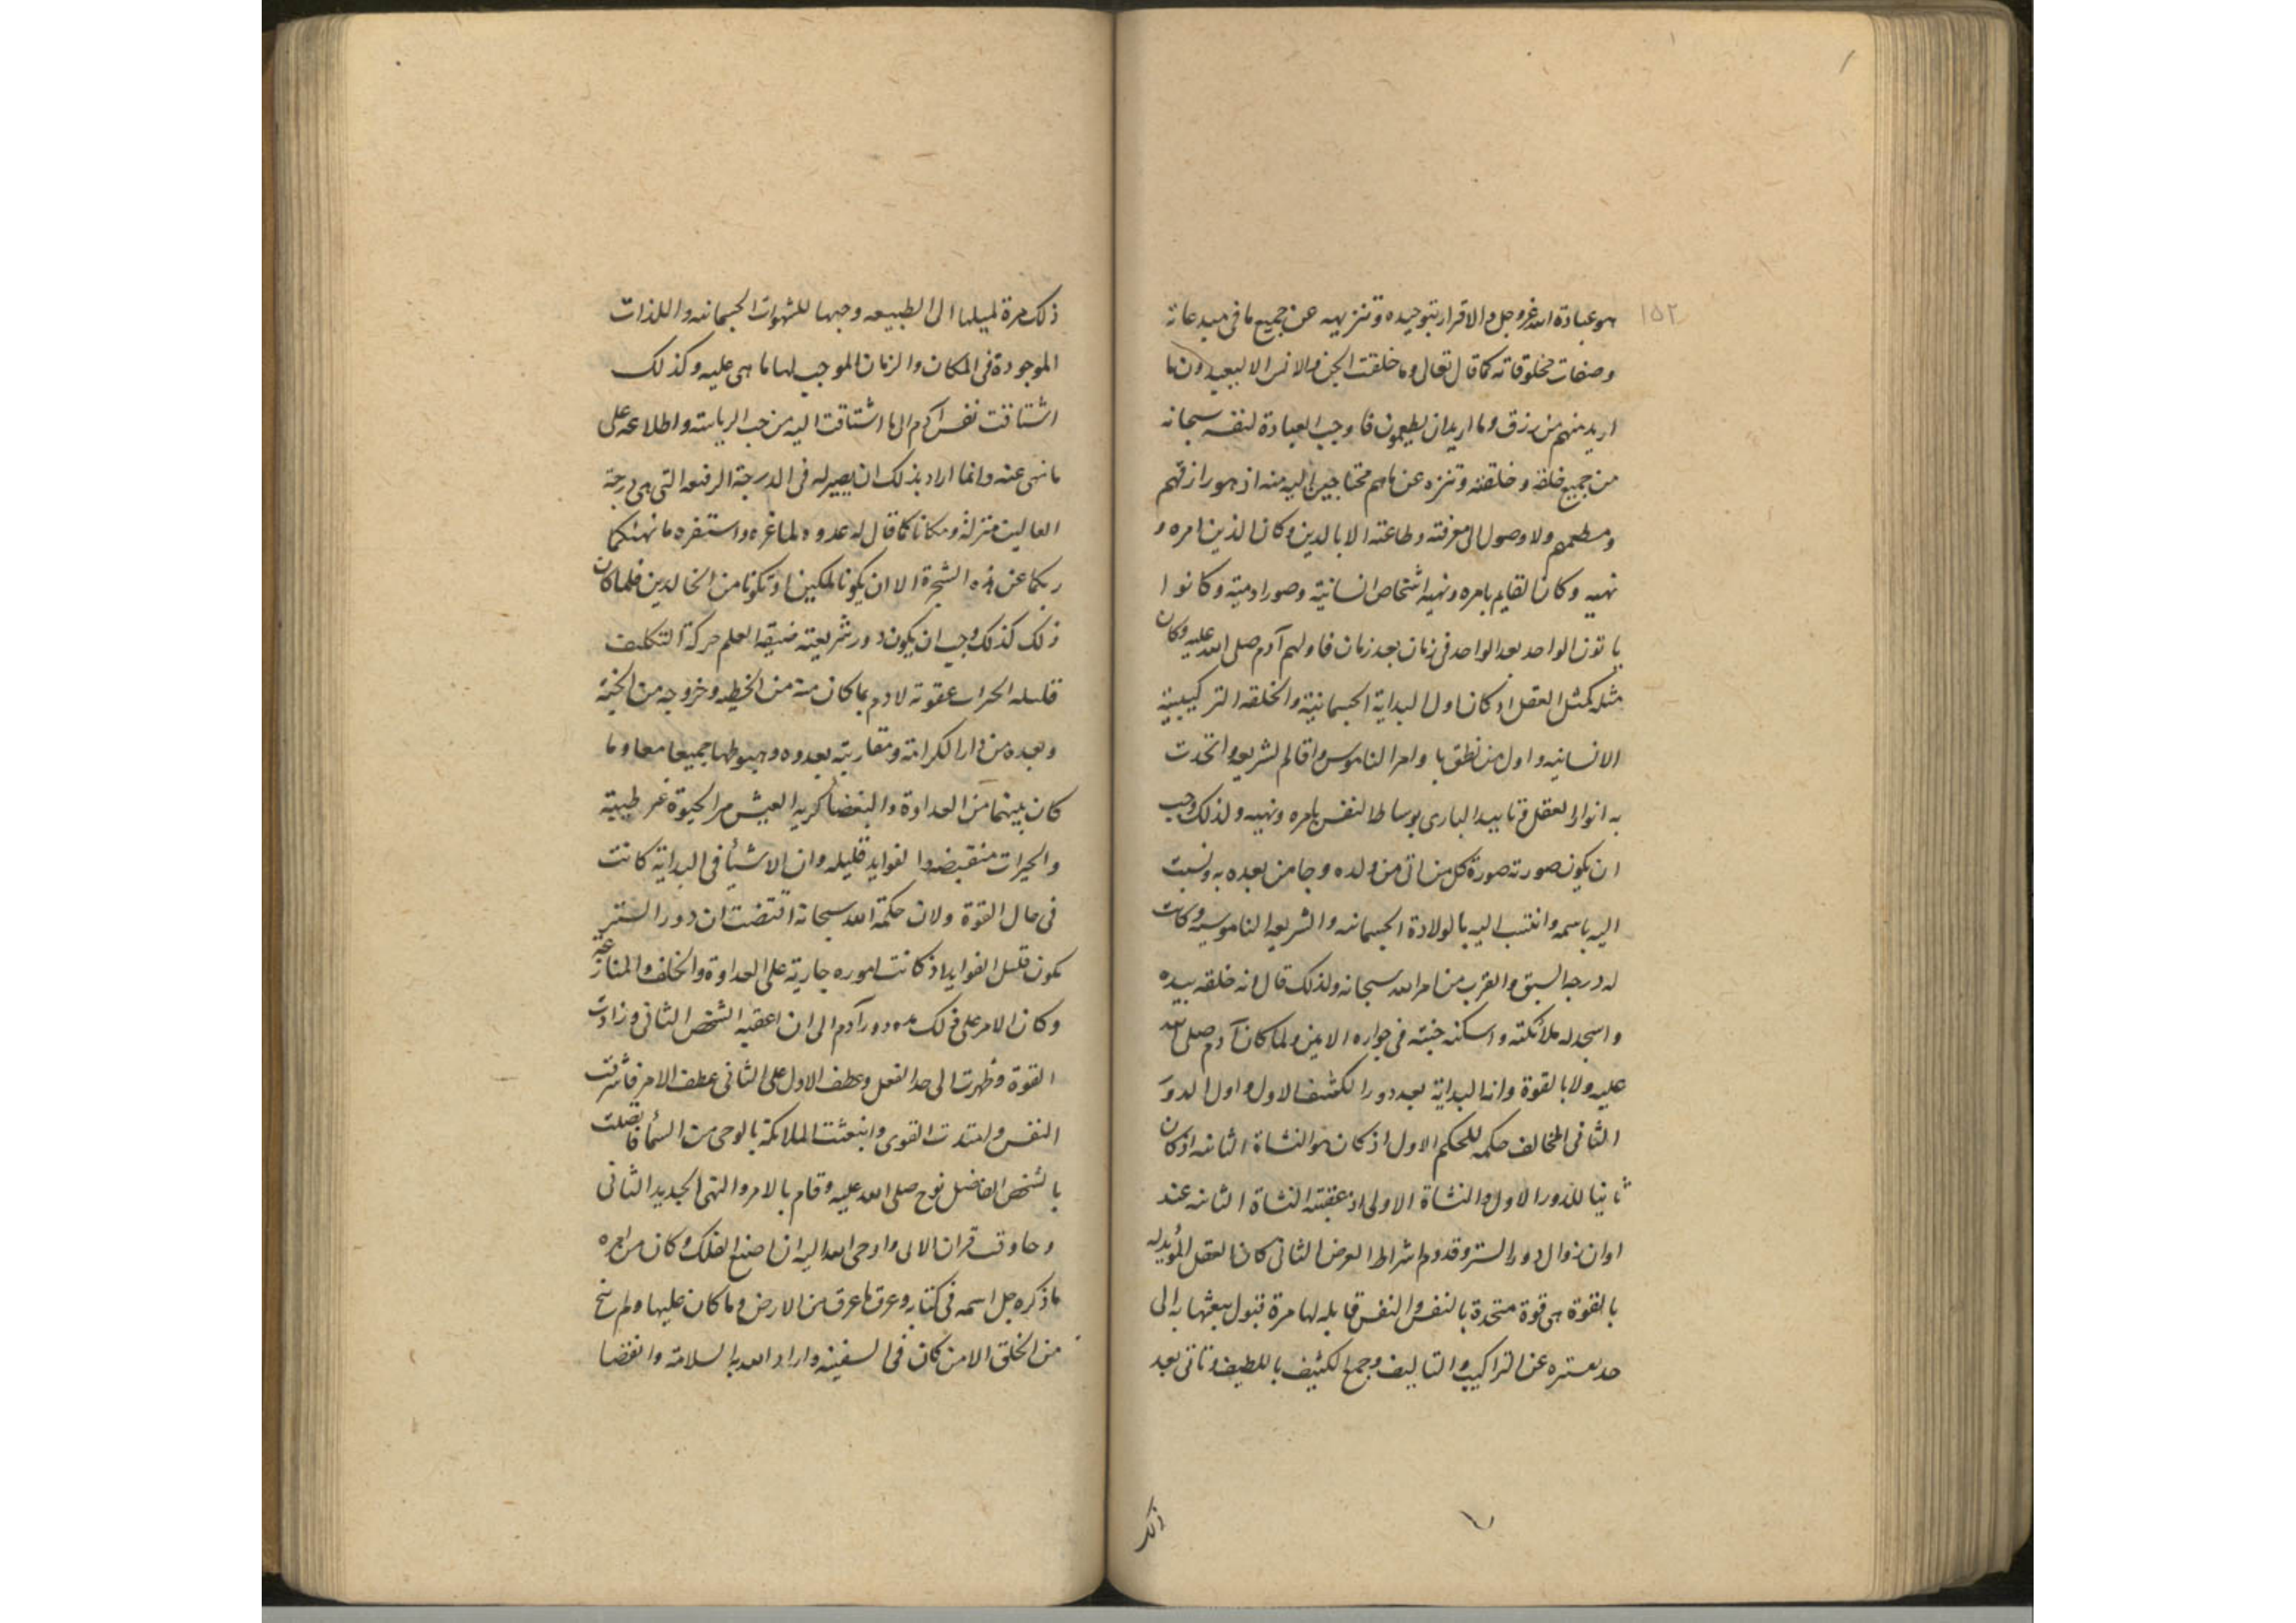 ١٥٢
هو عبادة الله عز وجل والاقرار بتوحيده وتنزيهه عن جميع ما فى مبدعاته
وصفات مخلوقاته كما قال تعالى وما خلقت الجن والانس الا ليعبدون ما
اريد منهم من رزق وما اريد ان يطعمون فاوجب العبادة لنفسه سبحانه
من جميع خلقه وخلقته وتنزه عن ما هم محتاجين اليه منه اذ هو رازقهم
ومطعمهم ولا وصول الى معرفته وطاعته الا بالدين وكان الدين امره و
نهيه وكان القايم بامره ونهيه اشخاص انسانية وصور ادمية وكانوا
ياتون الواحد بعد الواحد فى زمان بعد زمان فاولهم آدم صلى الله عليه وكان
مثله كمثل العقل اذ كان اول البداية الجسمانية والخلقه التركيبية
الانسانيه واول من نطق بها وامر الناموس واقام الشريعه واتحدت
به انوار العقل وتاييد البارى بوساطه النفس بامره ونهيه ولذلك وجب
ان يكون صورته صورة كل من اتى من ولده وجا من بعده به ونسبت
اليه باسمه وانتسب اليه بالولادة الجسمانيه والشريعه الناموسيه وكانت
له درجه السبق والقرب من امر الله سبحانه ولذلك قال انه خلقه بيده
واسجد له ملائكته واسكنه جنته فى جواره الامين ولما كان آدم صلى الله
عليه ولا بالقوة وانه البداية بعد دور الكشف الاول واول الدور
الثانى المخالف حكمه للحكم الاول اذ كان هو النشاة الثانيه اذ كان
ثانيا للدور الاول والنشاة الاولى اذ عقبته النشاة الثانيه عند
اوان زوال دور الستر وقدوم اشراط العرض الثانى كان العقل المؤيد له
بالقوة هى قوة متحدة بالنفس والنفس قابله لها مرة قبول يبعثها به الى
حد يستره عن التراكيب والتاليف وجمع الكثيف باللطيف وتاتى بعد
ذلك
ذلك مرة لميلها الى الطبيعه وحبها للشهوات الجسمانيه واللذات
الموجودة فى المكان والزمان الموجب لها ما هى عليه وكذلك
اشتاقت نفس آدم الى ما اشتاقت اليه من حب الرياسة واطلاعه على
ما نهى عنه وانما اراد بذلك ان يصير له فى الدرجة الرفيعه التى هى درجة
العاليين منزلة ومكانا كما قال له عدوه لما غره واستفزه ما نهيكما
ربكما عن هذه الشجرة الا ان يكونا ملكين او تكونا من الخالدين فلما كان
ذلك كذلك وجب ان يكون دور شريعته ضيقه العلم حركة التكليف
قليله الخيرات عقوبة لادم بما كان منه من الخطيه وخروجه من الجنة
وبعده من دار الكرامة ومقاربته بعدوه وهبوطها جميعا معا وما
كان بينهما من العداوة والبغضا كريه العيش مر الحيوة غير طيبة
والخيرات منقبضه والفوايد قليله وان الاشيا فى البداية كانت
فى حال القوة ولان حكمة الله سبحانه اقتضت ان دور الستر
يكون قليل الفوايد اذ كانت اموره جارية على العداوة والخلف والمنازعة
وكان الامر على ذلك مده دور آدم الى ان اعقبه الشخص الثانى وزادت
القوة وظهرت الى حد الفعل وعطف الاول على الثانى عطف الامر فاشرقت
النفس وامتدت القوى وانبعثت الملائكة بالوحى من السما فاتصلت
بالشخص الفاضل نوح صلى الله عليه وقام بالامر والنهى الجديد الثانى
وحاوت قران الاى واوحى الله اليه ان اصنع الفلك وكان من امره
ما ذكره جل اسمه فى كتابه وغرق ما غرق من الارض وما كان عليها ولم ينج
من الخلق الا من كان فى السفينه واراد الله به السلامة وانقضا